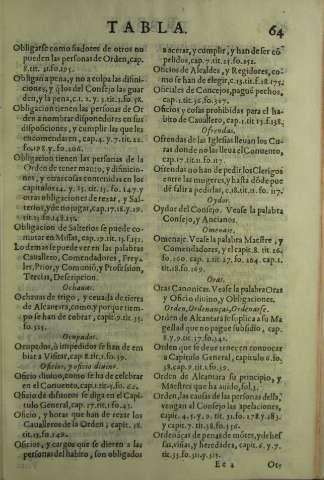 TABLA. 64
Obligarse como fiadores de otros no
pueden las personas de Orden, cap.
8. tit. 31. fo. 295.
Obligan a pena, y no a culpa las difini-
ciones, y los del Consejo las guar
den, y la pena, c. 1. 2. y 3. tit. 1. fo. 58.
Obligacion tienen las personas de Or
den a nombrar disponedores en sus
disposiciones, y cumplir las que les
encomendaren, cap. 4. y 7. tit. 22.
fo. 198. y fo. 206.
Obligacion tienen las personas de la
Orden de tener manto, y difinicio-
nes, y otras cosas contenidas en los
capitulos 14. y 23. tit. 13. fo. 147. y
otras obligaciones de rezar, y Sal-
terios, y de no jugar, cap. 17. 18. y 19.
tit. 13. fo. 148. 152.
Obligacion de Salterios se puede co-
mutar en Missas, cap. 19. tit. 13. f. 151.
Lo demas se puede ver en las palabras
Cavallero, Comendadores, Frey-
les, Prior, y Comunió, y Profession,
Tercias, Descripcion.
Ochavas.
Ochavas de trigo, y cevada de tierra
de Alcantara, como, y porque tiem-
po se han de cobrar, cap. 9. tit. 35.
fo. 325.
Ocupados.
Ocupados, ò impedidos se han de em-
biar a Visitar, cap. 8. tit. 1. fo. 59.
Oficios, y oficio divino.
Oficio divino, como se ha de celebrar
en el Convento, cap. 1. tit. 4. fo. 62.
Oficio de difuntos se diga en el Capi-
tulo General, cap. 17. tit. 1. fo. 43.
Oficio, y horas que han de rezar los
Cavalleros de la Orden, cap. 18.
tit. 13. fo. 149.
Oficios, y cargos que se dieren a las
personas del habito, son obligados
a acetar, y cumplir, y han de ser co-
pelidos, cap. 7. tit. 23. fo. 252.
Oficios de Alcaldes, y Regidores, co-
mo se han de elegir, c. 15. tit. 18. f. 175.
Oficiales de Concejos, pague pechos,
cap. 1. tit. 30. fo. 307.
Oficios y cosas prohibidas para el ha-
bito de Cavallero, cap. 1. tit. 13. f. 138.
Ofrendas.
Ofrendas de las Iglesias llevan los Cu-
ras donde no las lleva el Convento,
cap. 17. tit. 11. fo. 117.
Ofrendas no han de pedir los Clerigos
entre las mugeres, y hasta dóde pue
dé salir a pedirlas, c. 18. tit. 11. fo. 117.
Oydor.
Oydor del Consejo. Vease la palabra
Consejo, y Ancianos.
Omenaje.
Omenaje. Vease la palabra Maestre, y
Comendadores, y el cap. 8. tit. 16.
fo. 160. cap. 1. tit. 17. fo. 164. cap. 1.
tit. 18. fo. 169.
Orar.
Oras Canonicas. Vease la palabra Orar
y Oficio divino, y Obligaciones.
Orden, Ordenanças, Ordenarse.
Orden de Alcantara se suplica a su Ma
gestad que no pague subsidio, cap.
8. y 9. tit. 17. fo. 341.
Orden que se deve tener en convocar
a Capitulo General, capitulo 6. fo.
38. cap. 9. tit. 1. fo. 39.
Orden de Alcantara su principio, y
Maestres que ha auido, fol. 3.
Orden, las causas de las personas della,
vengan al Consejo las apelaciones,
capit. 4. 5. y 9. tit. 31. fo. 278. y 283.
y capit. 7. tit. 38. fo. 350.
Ordenáças de penas de mótes, y dehef
sas, viñas, y heredades, capit. 6. y 7.
tit. 35. fo. 311. y 315.
Ee 2 Otor